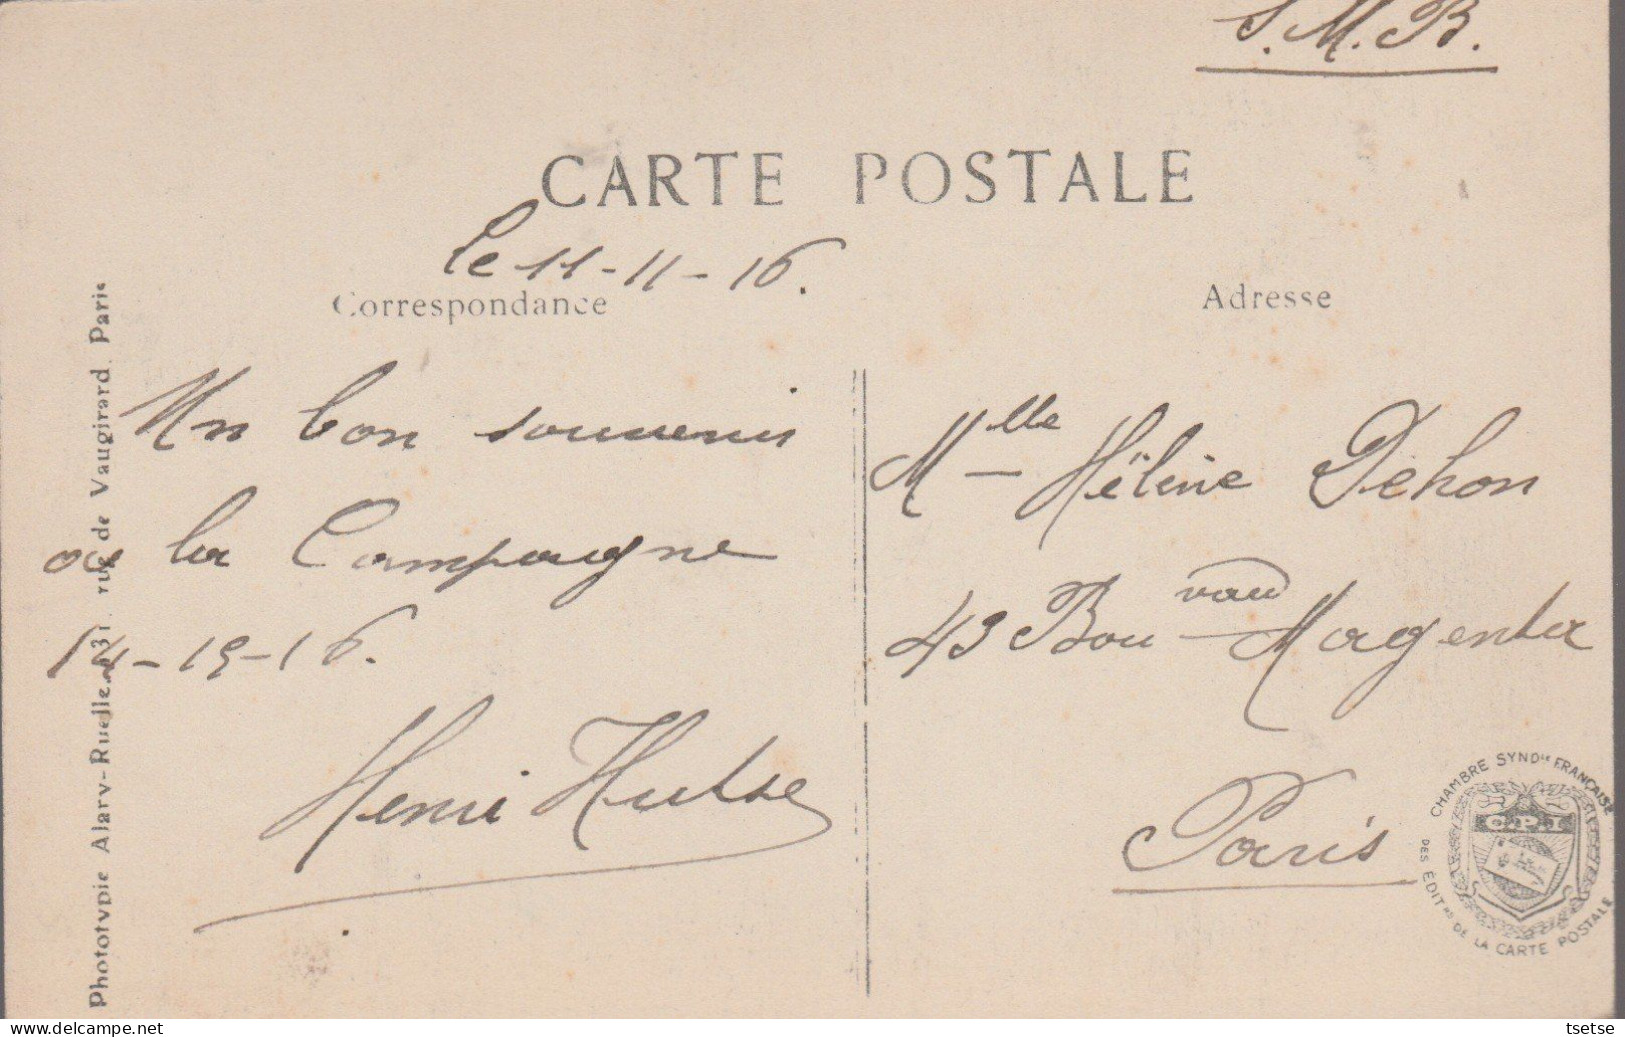 S.M.B.
CARTE POSTALE
le 11-11-16.
Correspondance
Adresse
Un bon souvenir
de la Campagne
14-15-16.
Henri Hulse
Mlle Hélène Dehon
43 Bouvard Magenta
Paris
Phototypie Alary-Ruelle, 231, rue de Vaugirard, Paris
CHAMBRE SYNDle FRANÇAISE
DES ÉDITrs DE LA CARTE POSTALE
C.P.I
www.delcampe.net
tsetse